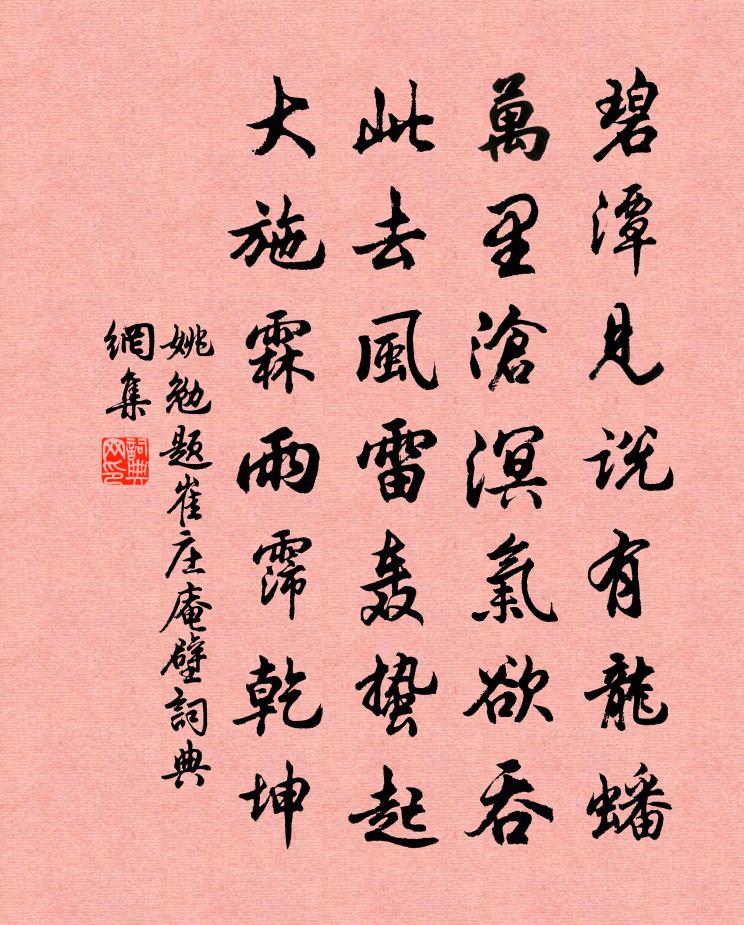 碧潭見说有龍蟠
萬里滄溟氣欲吞
此去風雷轰蛰起
大施霖雨霈乾坤
姚勉题崔庄庵壁詞典
網集
詞典网印